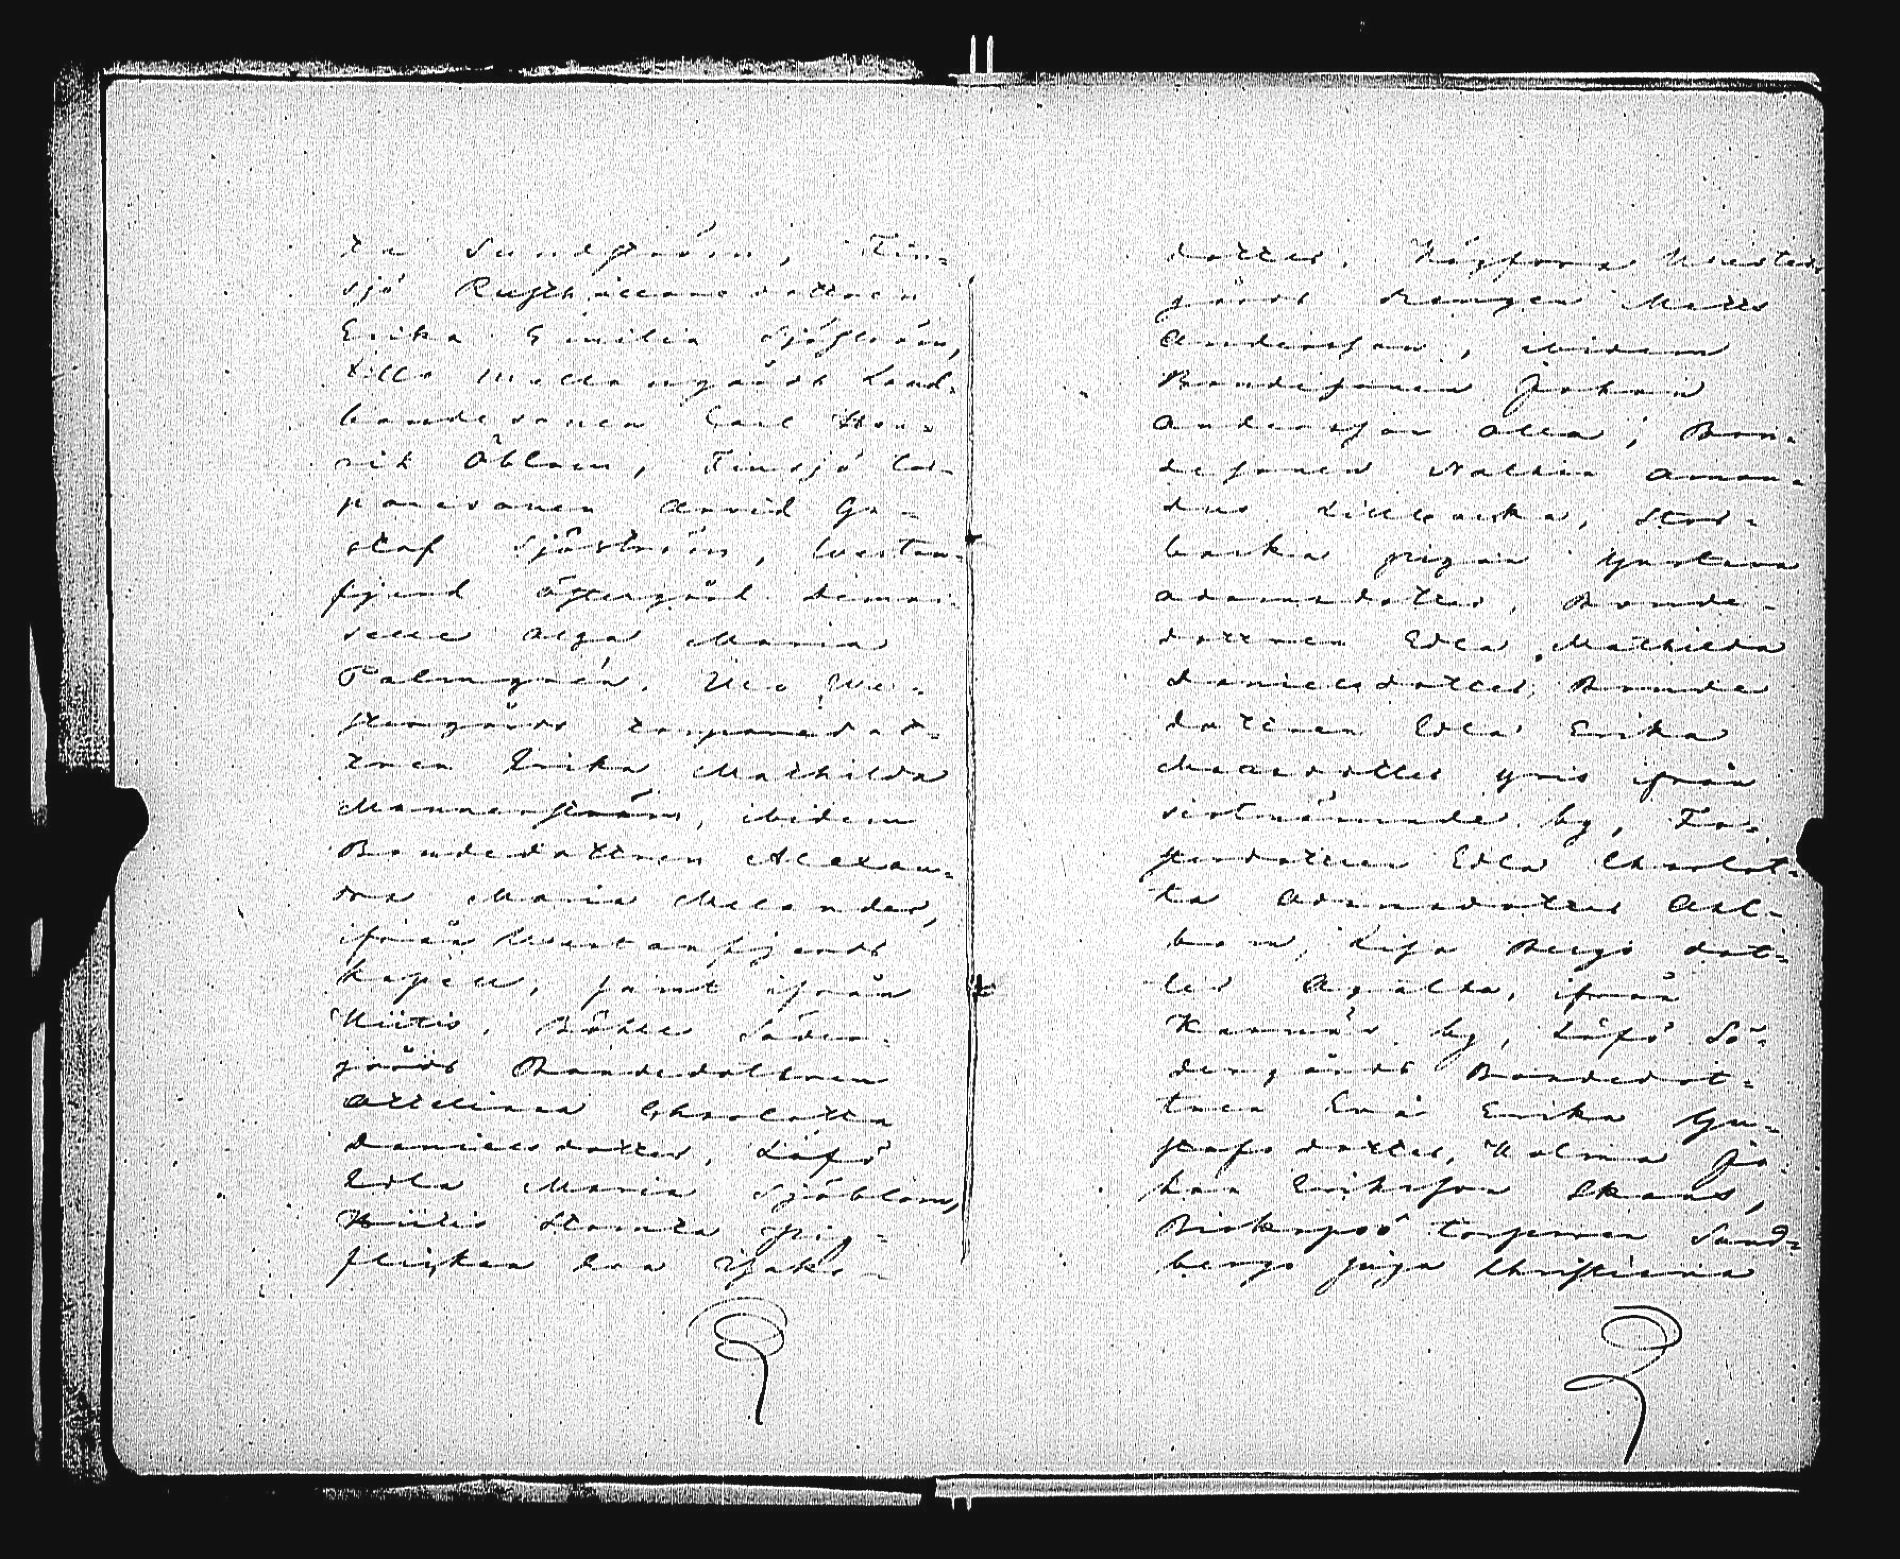 ta Sundström, Tin-
sjö Rusthållaredottren
Erika Emilia Sjöström,
Lilla Mellangårds Land-
bondesonen Carl Hen-
rik Öblom, Finsjö Tor-
paresonen Arvid Gu-
staf Sjöström, Westan-
fjerd Östergård Demoi-
selle Olga Maria
Palmgrén, We-
stergårds torparedot-
tren Erika Mathilda
Mannerström, ibidem
Bondedottren Alexan-
dra Maria Melander,
ifrån Westanfjerds
kapell, samt ifrån
Hiitis, Böhle Söder-
gårds Bondedottren
Charlotta
Danielsdotter, Löfö
Edla Maria Sjöblom,
Hiitis Stomta
flickan Eva Jako-
dotter, Högsåra Wester-
gårds drengen Matts
Andersson, ibidem
Bondesonen Johan
Andersson Alla, Bon-
desonen Amand-
dus Lillbacka, Stor-
backa pigan Gustava
Adamsdotter, Bonde-
dottren Edla Mathilda
Danielsdotter, Bonde
dottren Edla Erika
ifrån
sistnämnde by,
Edla Charlot-
ta Adamsdotter Ahl-
bom, Lisa Bergs dot-
ter Agatha, ifrån
by, Löfö Sö-
dergårds Bondedot-
tren Eva Erika Gu-
stafsdotter, Holma Jo-
han Eriksson Ekans,
Biskopsö torparen Sand-
bergs piga Christina